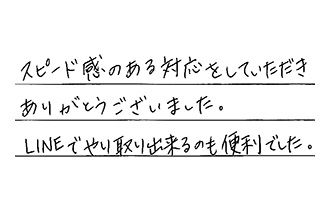 スピード感のある対応をしていただき
ありがとうございました。
LINEでやり取り出来るのも便利でした。